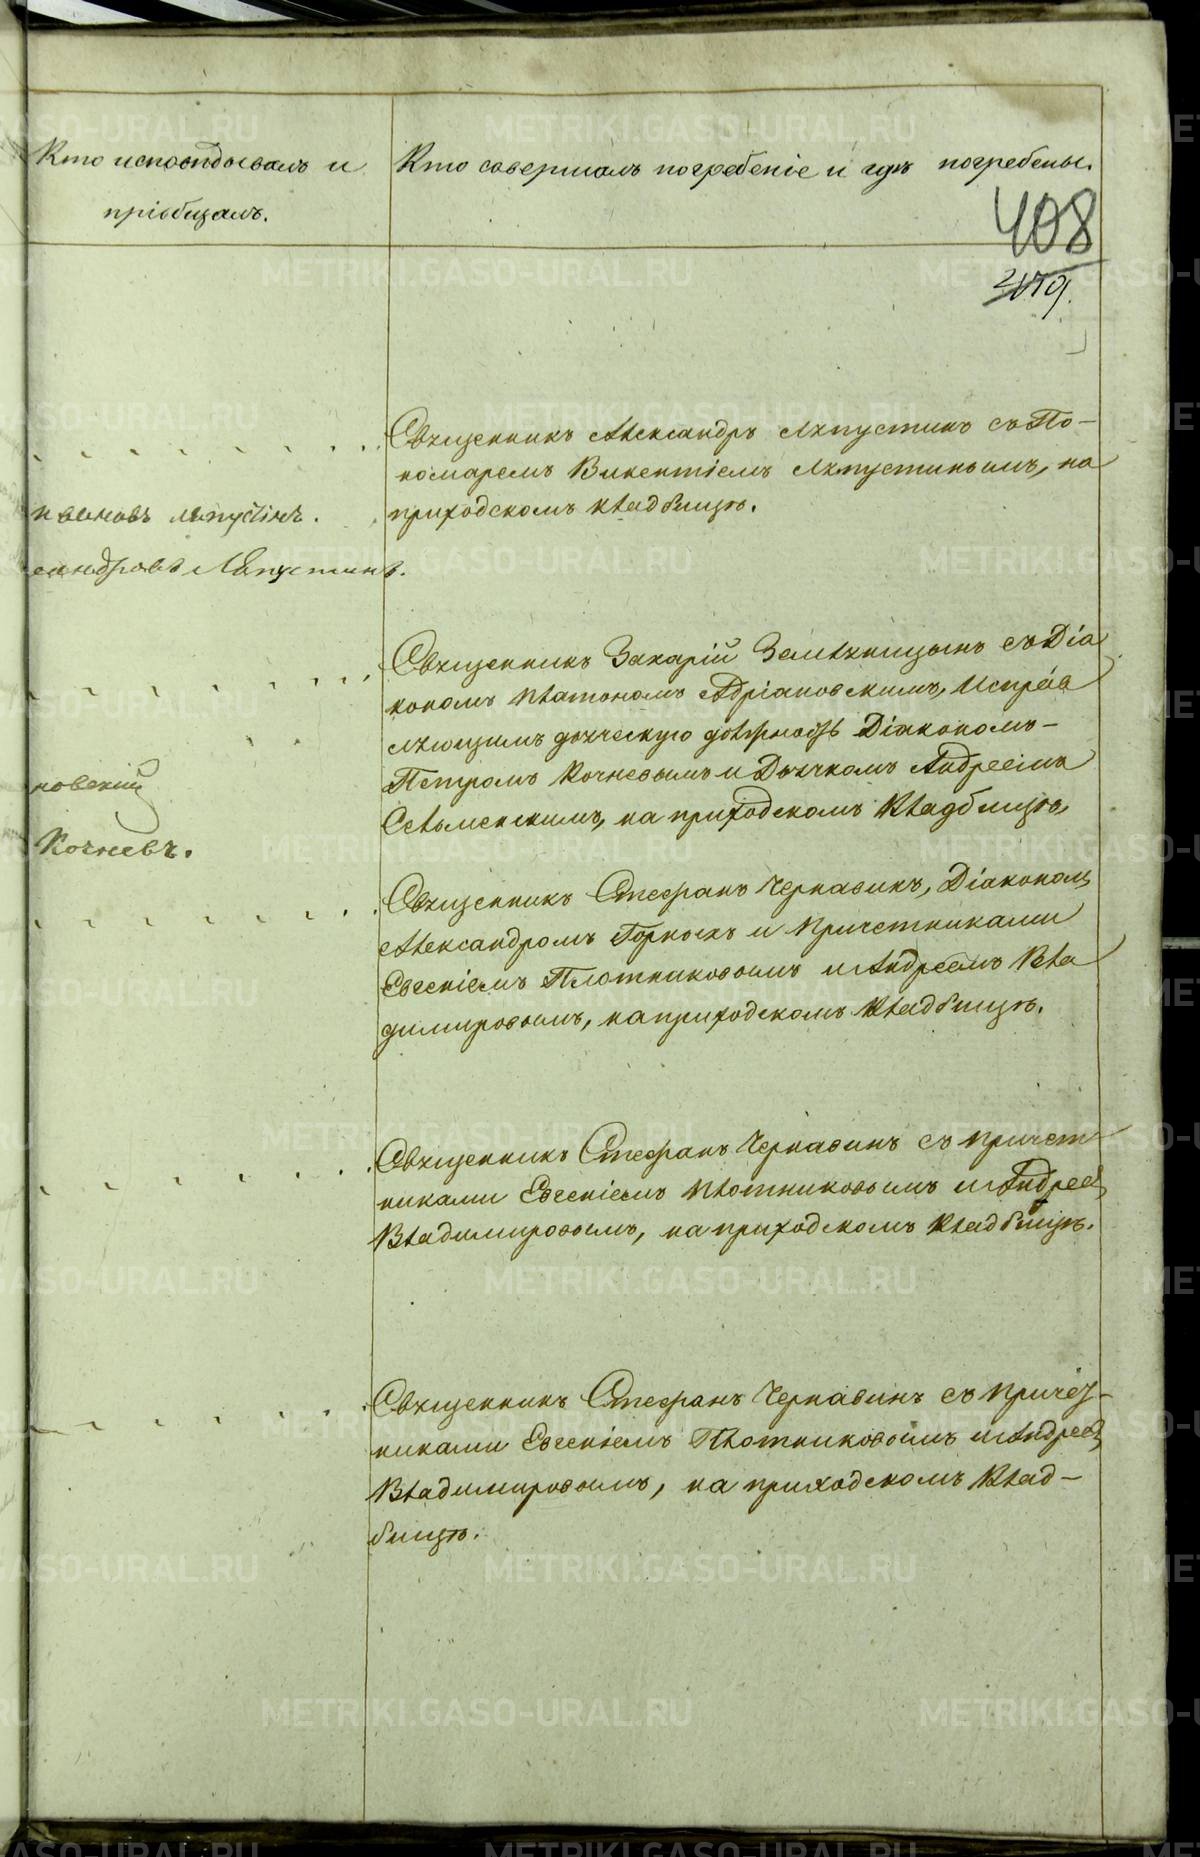 Кто исповѣдывалъ и
пріобщалъ.
Кто совершалъ погребеніе и гдѣ погребены.
408
Священникъ Александръ Ляпустинъ съ По-
номаремъ Викентіемъ Ляпустинымъ, на
приходскомъ кладбищѣ.
ивановъ Ляпустинъ.
сандровъ Ляпустинъ.
Священникъ Захарій Земляницынъ съ Діа
кономъ Платономъ Адріановскимъ, Исправ
ляющимъ дьяческую должность Діакономъ
Петромъ Кочневымъ и Дьячкомъ Андреемъ
Сельменскимъ, на приходскомъ Кладбищѣ,
новскій
Кочневъ.
Священникъ Стефанъ Чернавинъ, Діакономъ
Александромъ Горныхъ и Причетниками
Евгеніемъ Плотниковымъ и Андреемъ Вла
димировымъ, на приходскомъ Кладбищѣ.
Священникъ Стефанъ Чернавинъ съ причет
никами Евгеніемъ Плотниковымъ и Андреемъ
Владимировымъ, на приходскомъ Кладбищѣ.
Священникъ Стефанъ Чернавинъ съ Причет-
никами Евгеніемъ Плотниковымъ и Андреемъ
Владимировымъ, на приходскомъ Клад-
бищѣ.
METRIKI.GASO-URAL.RU